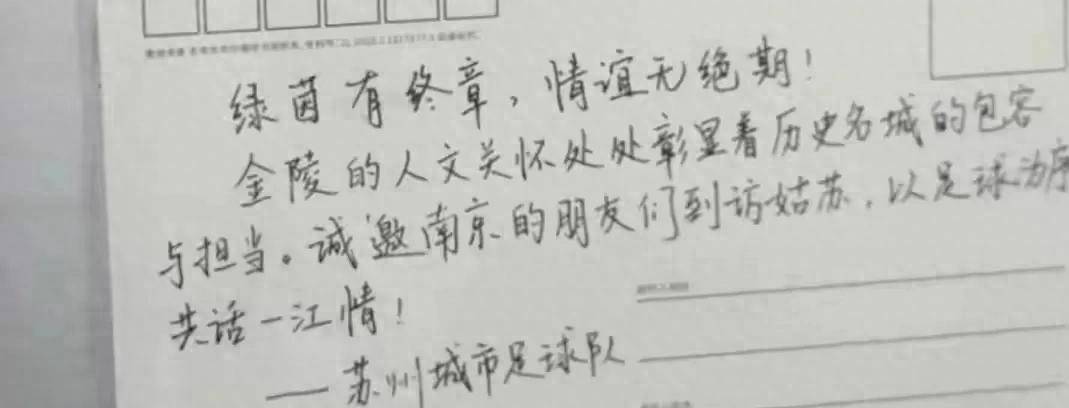 绿茵有终章，情谊无绝期！
金陵的人文关怀处处彰显着历史名城的包容
与担当。诚邀南京的朋友们到访姑苏，以足球为序
共话一江情！
——苏州城市足球队